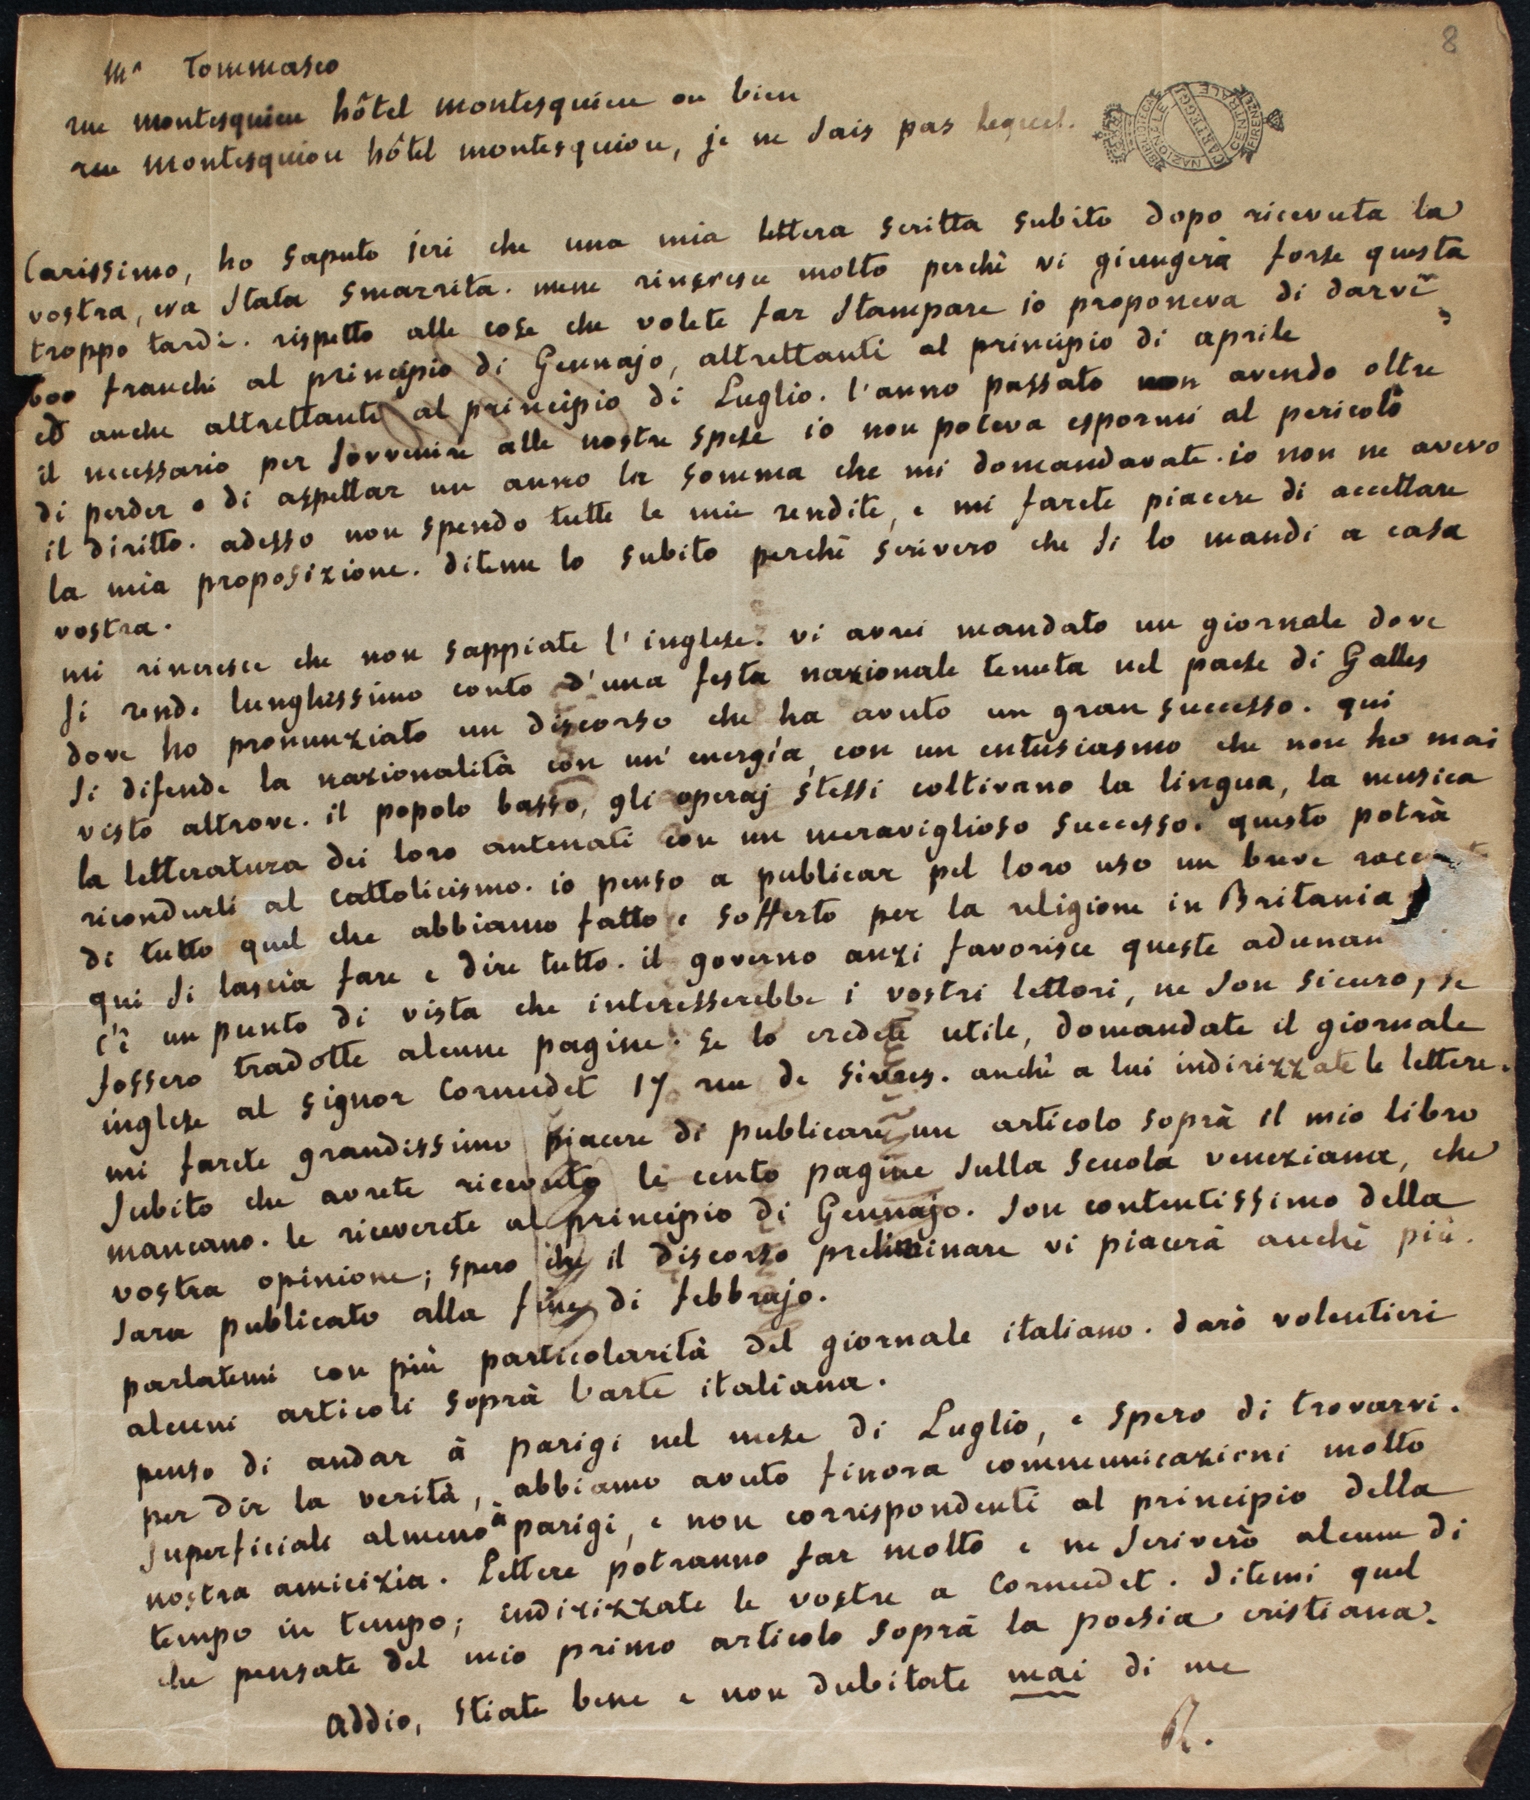 8
Mr Tommaseo
rue montesquieu hôtel montesquieu ou bien
rue montesquiou hôtel montesquiou, je ne sais pas lequel.
BIBLIOTECA NAZIONALE CENTRALE FIRENZE
CARTEGGI
Carissimo, ho saputo jeri che una mia lettera scritta subito dopo ricevuta la
vostra, era stata smarrita. mene rincresce molto perchè vi giungerà forse questa
troppo tardi. rispetto alle cose che volete far stampare io proponeva di darvi
600 franchi al principio di Gennajo, altrettanti al principio di aprile
ed anche altrettanti al principio di Luglio. l'anno passato non avendo oltre
il necessario per sovvenire alle nostre spese io non poteva espormi al pericolo
di perder o di aspettar un anno la somma che mi domandavate. io non ne avevo
il diritto. adesso non spendo tutte le mie rendite, e mi farete piacere di accettare
la mia proposizione. ditemelo subito perchè scrivero che si lo mandi a casa
vostra.
mi rincresce che non sappiate l'inglese. vi avrei mandato un giornale dove
si rende lunghissimo conto d'una festa nazionale tenuta nel paese di Galles
dove ho pronunziato un discorso che ha avuto un gran successo. qui
si difende la nazionalità con un' energia, con un entusiasmo che non ho mai
visto altrove. il popolo basso, gli operaj stessi coltivano la lingua, la musica
la letteratura dei loro antenati con un meraviglioso successo. questo potrà
ricondurli al cattolicismo. io penso a publicar pel loro uso un breve
di tutto quel che abbiamo fatto e sofferto per la religione in Britania
qui si lascia fare e dire tutto. il governo anzi favorisce queste adunan
c'è un punto di vista che interesserebbe i vostri lettori, ne son sicuro, se
fossero tradotte alcune pagine. se lo credete utile, domandate il giornale
inglese al signor Cornudet 17 rue de sèvres. anchè a lui indirizzate le lettere.
mi farete grandissimo piacere di publicare un articolo soprà il mio libro
subito che avrete ricevuto le cento pagine sulla scuola veneziana, che
mancano. le riceverete al principio di Gennajo. son contentissimo della
vostra opinione; spero che il discorso preliminare vi piacerà anchè più.
sara publicato alla fine di febbrajo.
parlatemi con più particolarità del giornale italiano. darò volentieri
alcuni articoli soprà l'arte italiana.
penso di andar à parigi nel mese di Luglio, e spero di trovarvi.
per dir la verità, abbiamo avuto finora communicazioni molto
superficiali almeno à parigi, e non corrispondenti al principio della
nostra amicizia. Lettere potranno far molto e ne scriverò alcune di
tempo in tempo; indirizzate le vostre a Cornudet. ditemi quel
che pensate del mio primo articolo soprà la poesia cristiana.
addio, stiate bene e non dubitate mai di me
R.